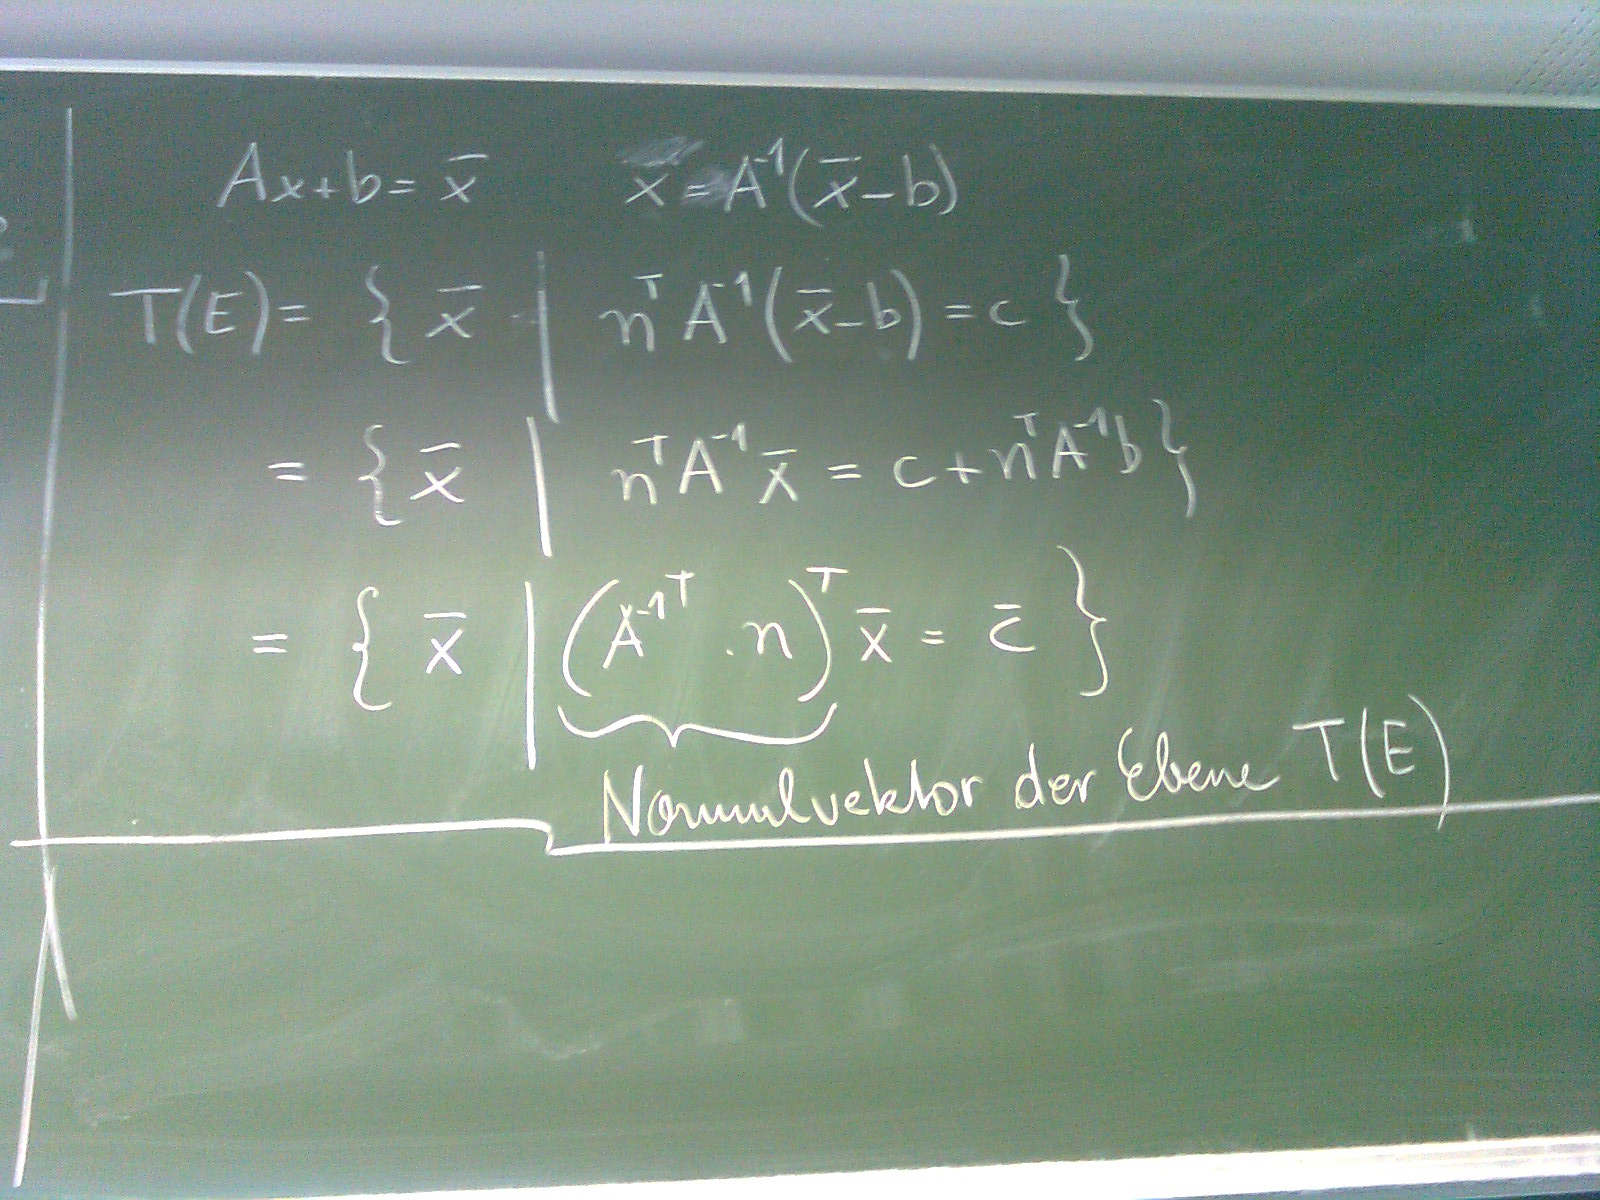 Ax+b= x̄ x = A⁻¹(x̄-b)
T(E)= { x̄ | nᵀA⁻¹(x̄-b) = c }
= { x̄ | nᵀA⁻¹x̄ = c+nᵀA⁻¹b}
= { x̄ | (A⁻¹ᵀ . n)ᵀ x̄ = c̄ }
Normalvektor der Ebene T(E)